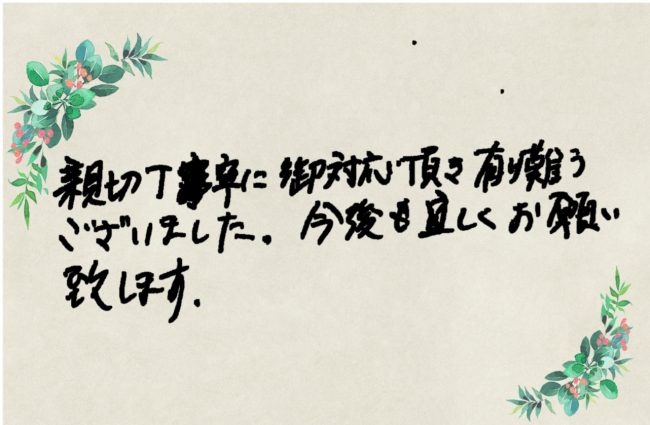 親切丁寧に御対応頂き有難う
ございました。今後も宜しくお願い
致します。